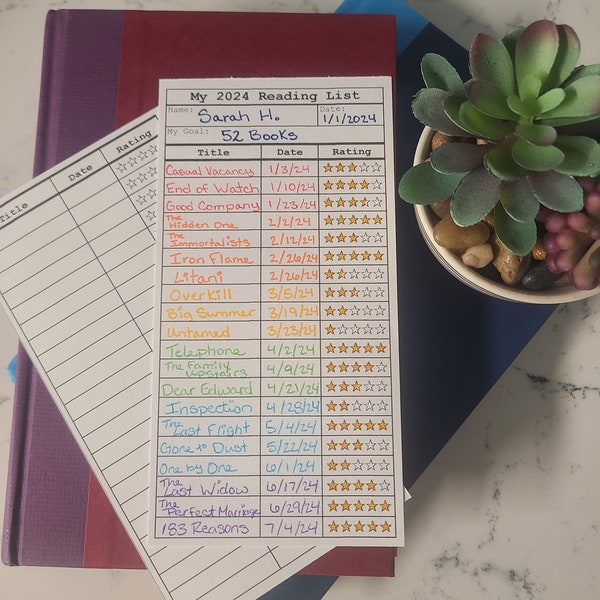 My 2024 Reading List
Name: Sarah H. Date: 1/1/2024
My Goal: 52 Books
Title Date Rating
Casual Vacancy 1/3/24
End of Watch 1/10/24
Good Company 1/23/24
The Hidden One 2/2/24
The Immortalists 2/12/24
Iron Flame 2/26/24
Litani 2/26/24
Overkill 3/5/24
Big Summer 3/19/24
Untamed 3/23/24
Telephone 4/2/24
The Family Upstairs 4/9/24
Dear Edward 4/21/24
Inspection 4/28/24
The Last Flight 5/4/24
Gone to Dust 5/22/24
One by One 6/1/24
The Last Widow 6/17/24
The Perfect Marriage 6/29/24
183 Reasons 7/4/24
Title Date Rating